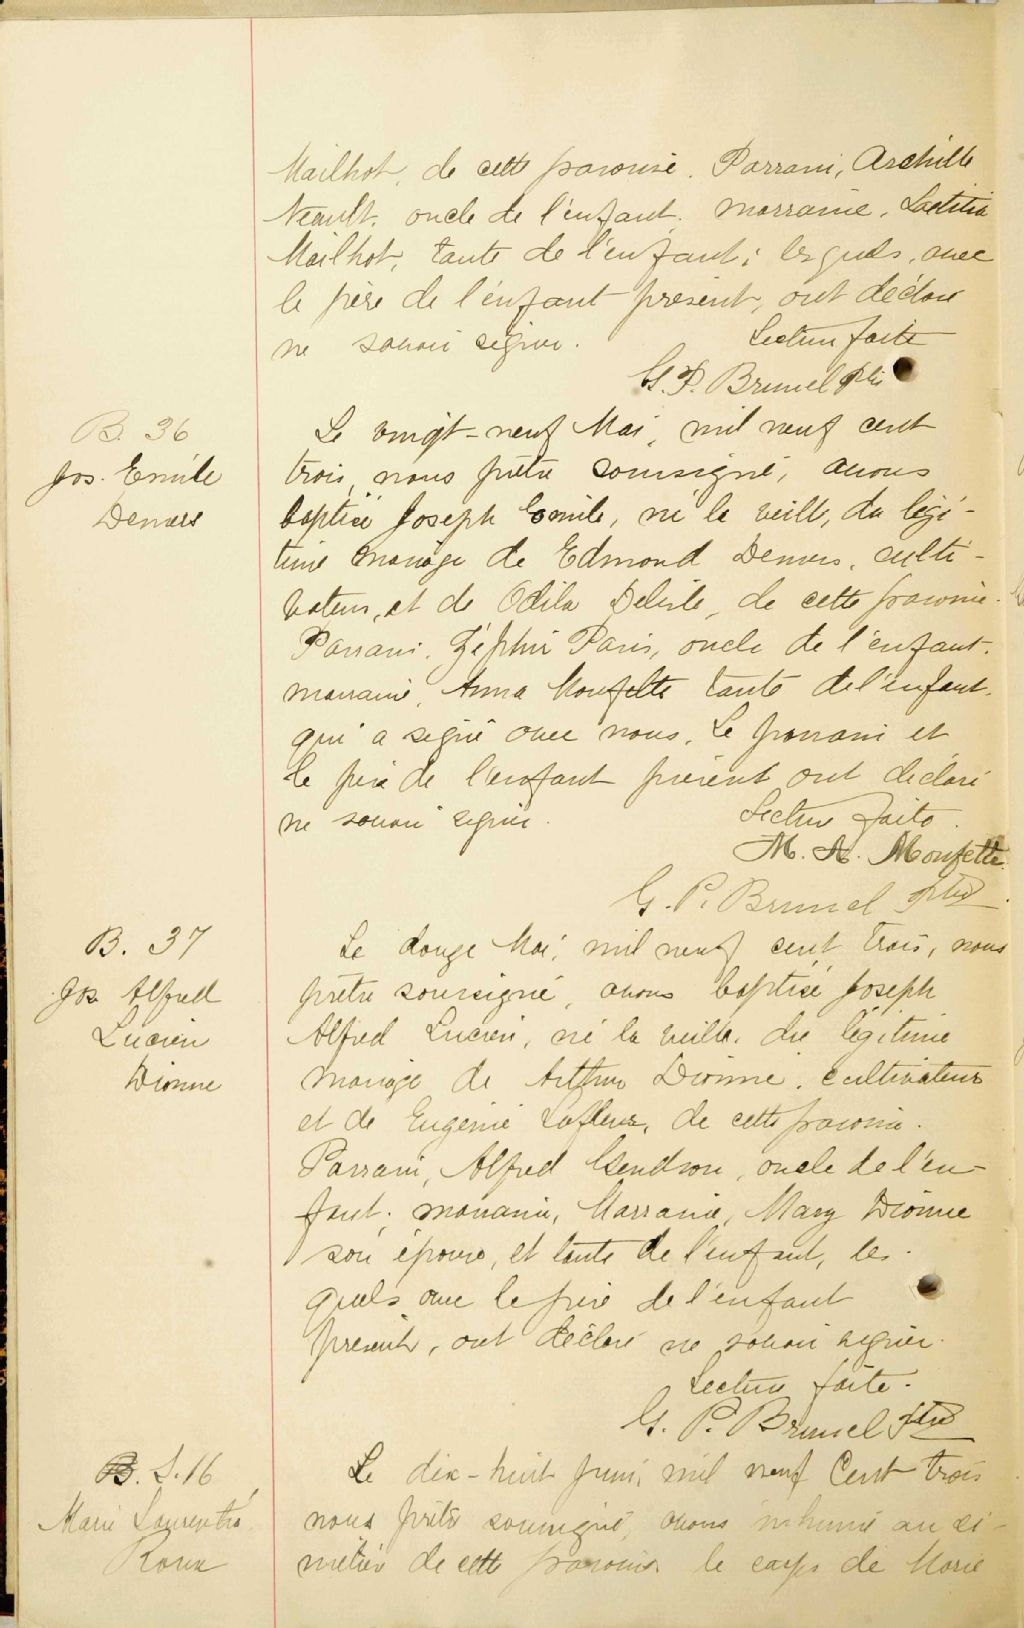 Mailhot, de cette paroisse. Parrain, Archille
Neault, oncle de l'enfant. marraine, Laetitia
Mailhot, tante de l'enfant; lesquels, avec
le père de l'enfant présent, ont déclaré
ne savoir signer. Lecture faite
G. P. Brunel Ptre
B. 36
Jos. Emile
Demers
Le vingt-neuf Mai, mil neuf cent
trois, nous prêtre soussigné, avons
baptisé Joseph Emile, né la veille, du légi-
time mariage de Edmond Demers, culti-
vateur, et de Odila Delisle, de cette paroisse.
Parrain, Zéphir Paris, oncle de l'enfant.
marraine, Anna Monfette tante de l'enfant.
qui a signé avec nous. Le parrain et
le père de l'enfant présent ont déclaré
ne savoir signer. Lecture faite.
M. A. Monfette.
G. P. Brunel Ptre
B. 37
Jos Alfred
Lucien
Dionne
Le douze Mai, mil neuf cent trois, nous
prêtre soussigné, avons baptisé Joseph
Alfred Lucien, né la veille, du légitime
mariage de Arthur Dionne, cultivateur
et de Eugénie Lafleur, de cette paroisse.
Parrain, Alfred Gendron, oncle de l'en-
fant; marraine, Marraine, Mary Dionne
son épouse, et tante de l'enfant, les-
quels avec le père de l'enfant
présent, ont déclaré ne savoir signer.
Lecture faite.
G. P. Brunel Ptre
B. S. 16
Marie Laurentia
Roux
Le dix-huit Juin, mil neuf Cent trois
nous prêtre soussigné, avons inhumé au ci-
metière de cette paroisse le corps de Marie